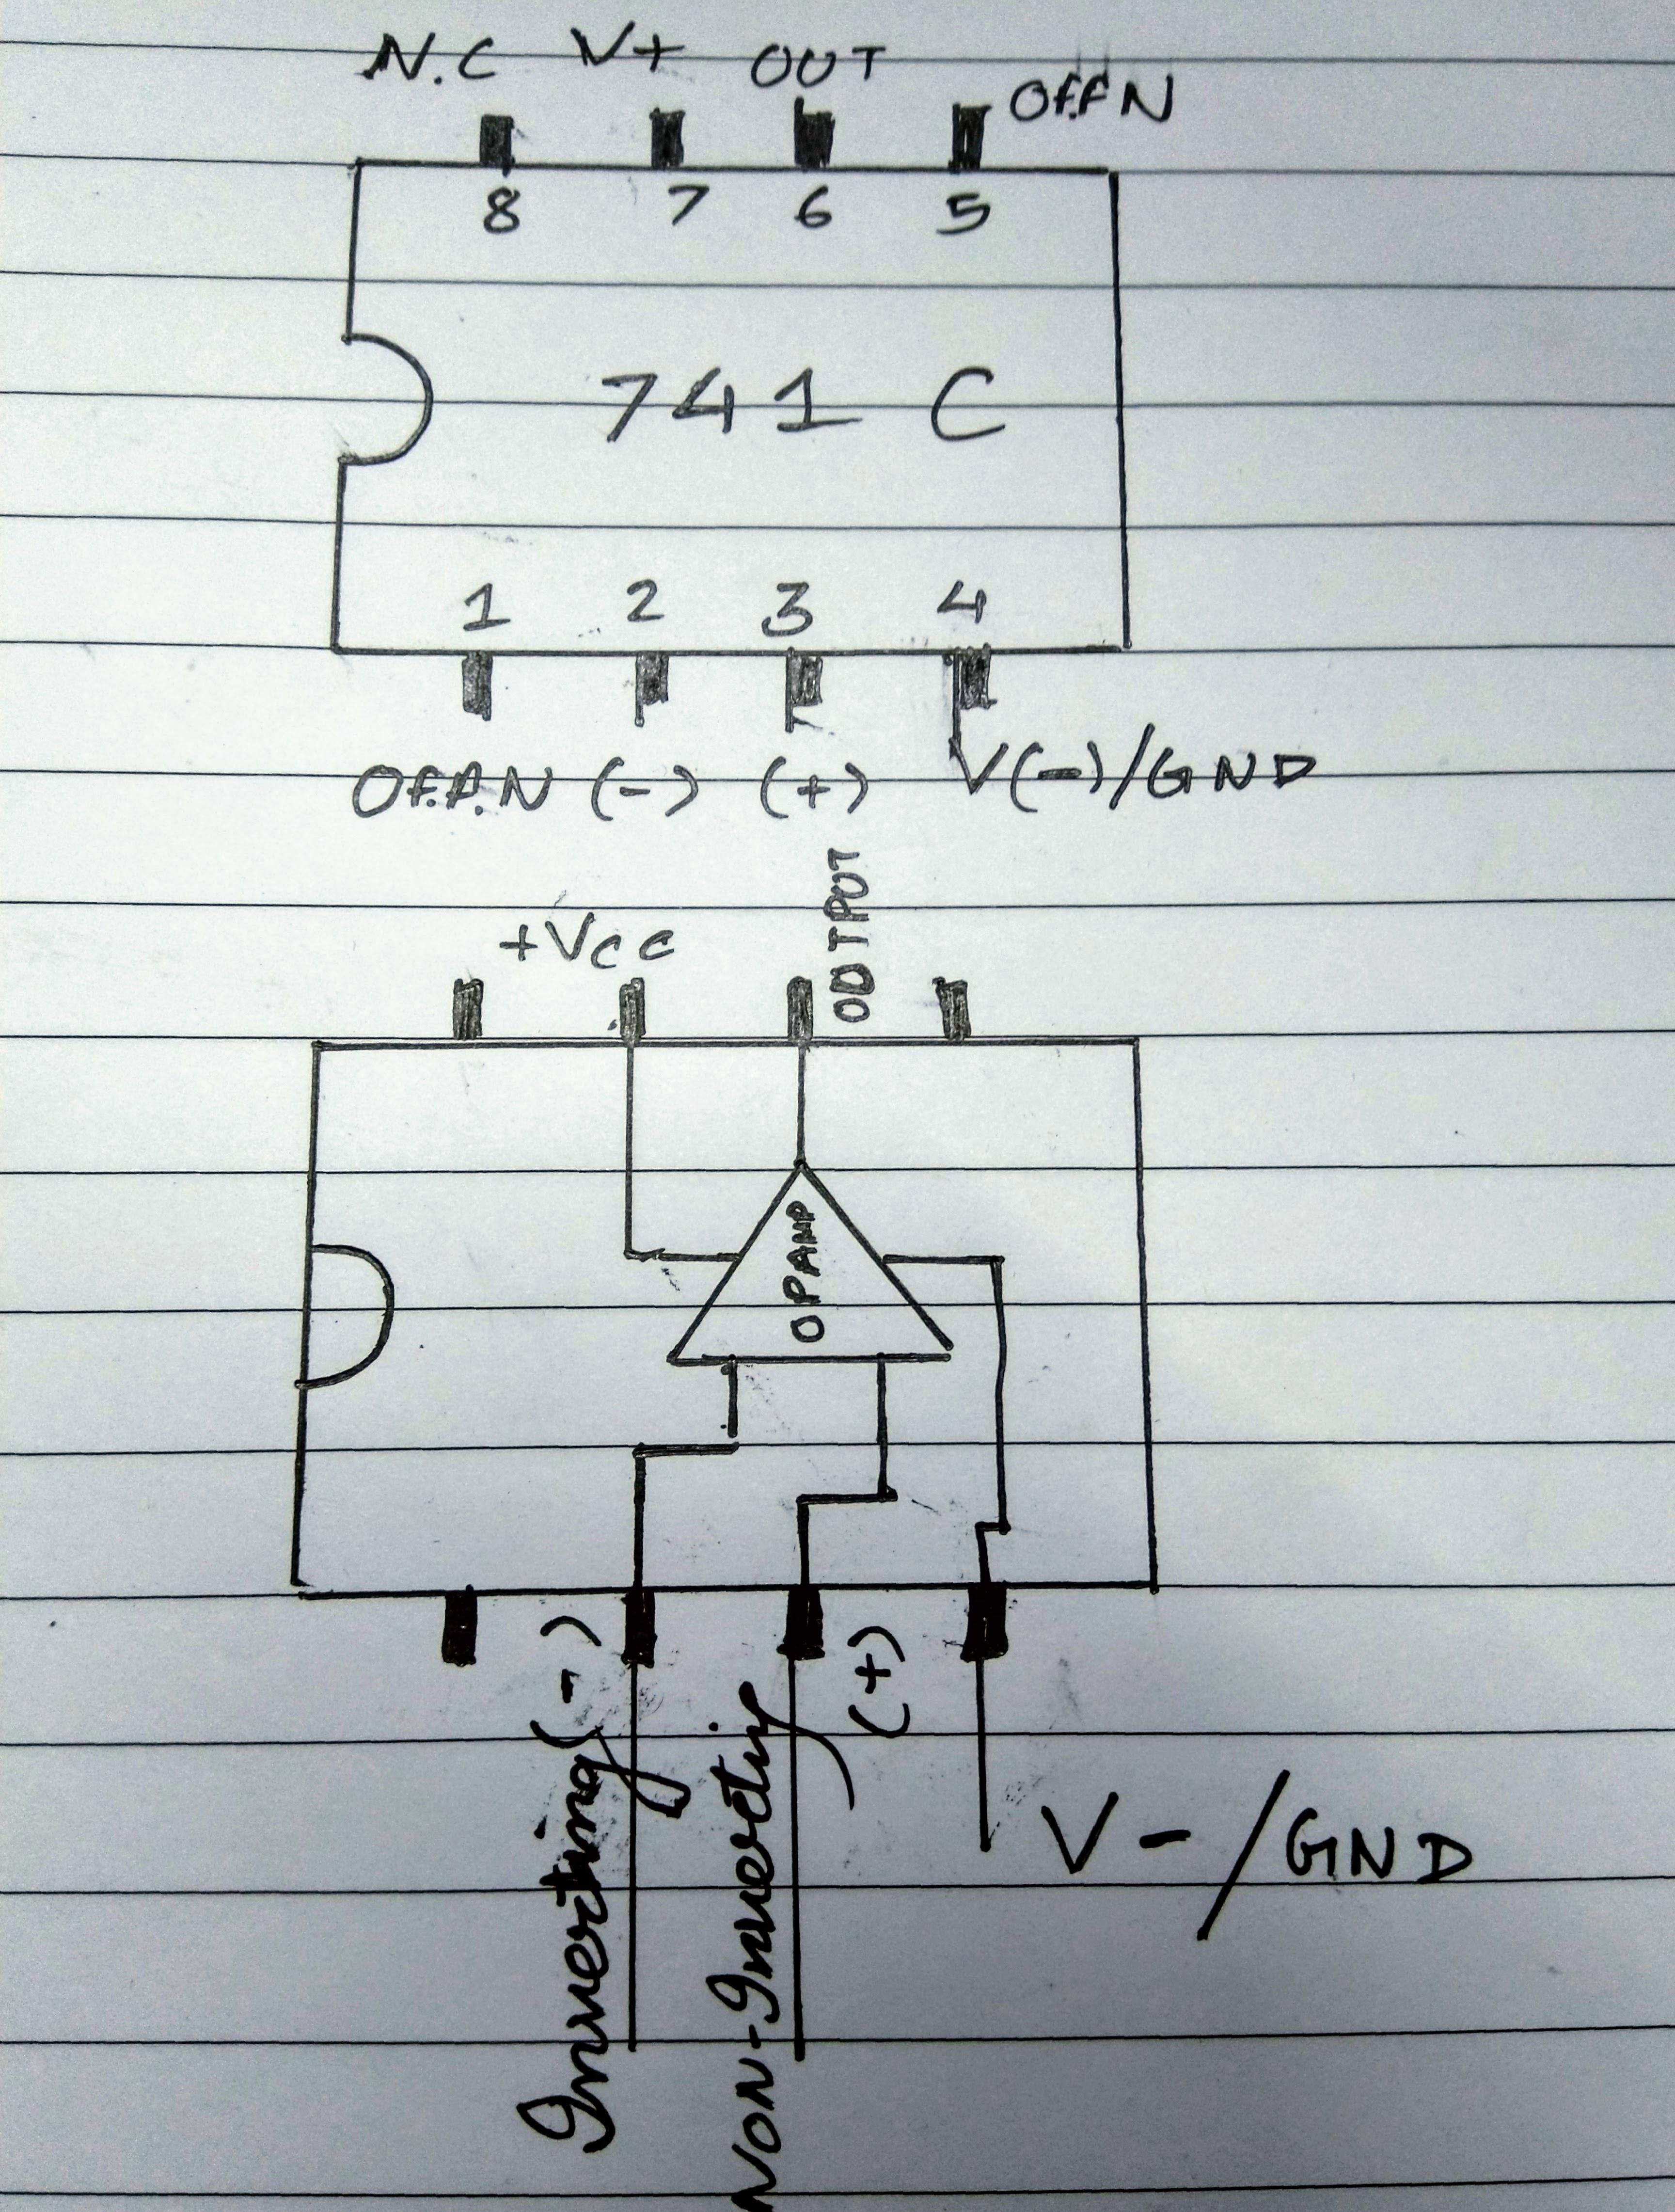 N.C V+ OUT OFFN
8 7 6 5
741 C
1 2 3 4
OF.F.N (-) (+) V(-)/GND
+Vcc OUTPUT
OPAMP
Inverting(-)
NON-Inverting (+)
V-/GND